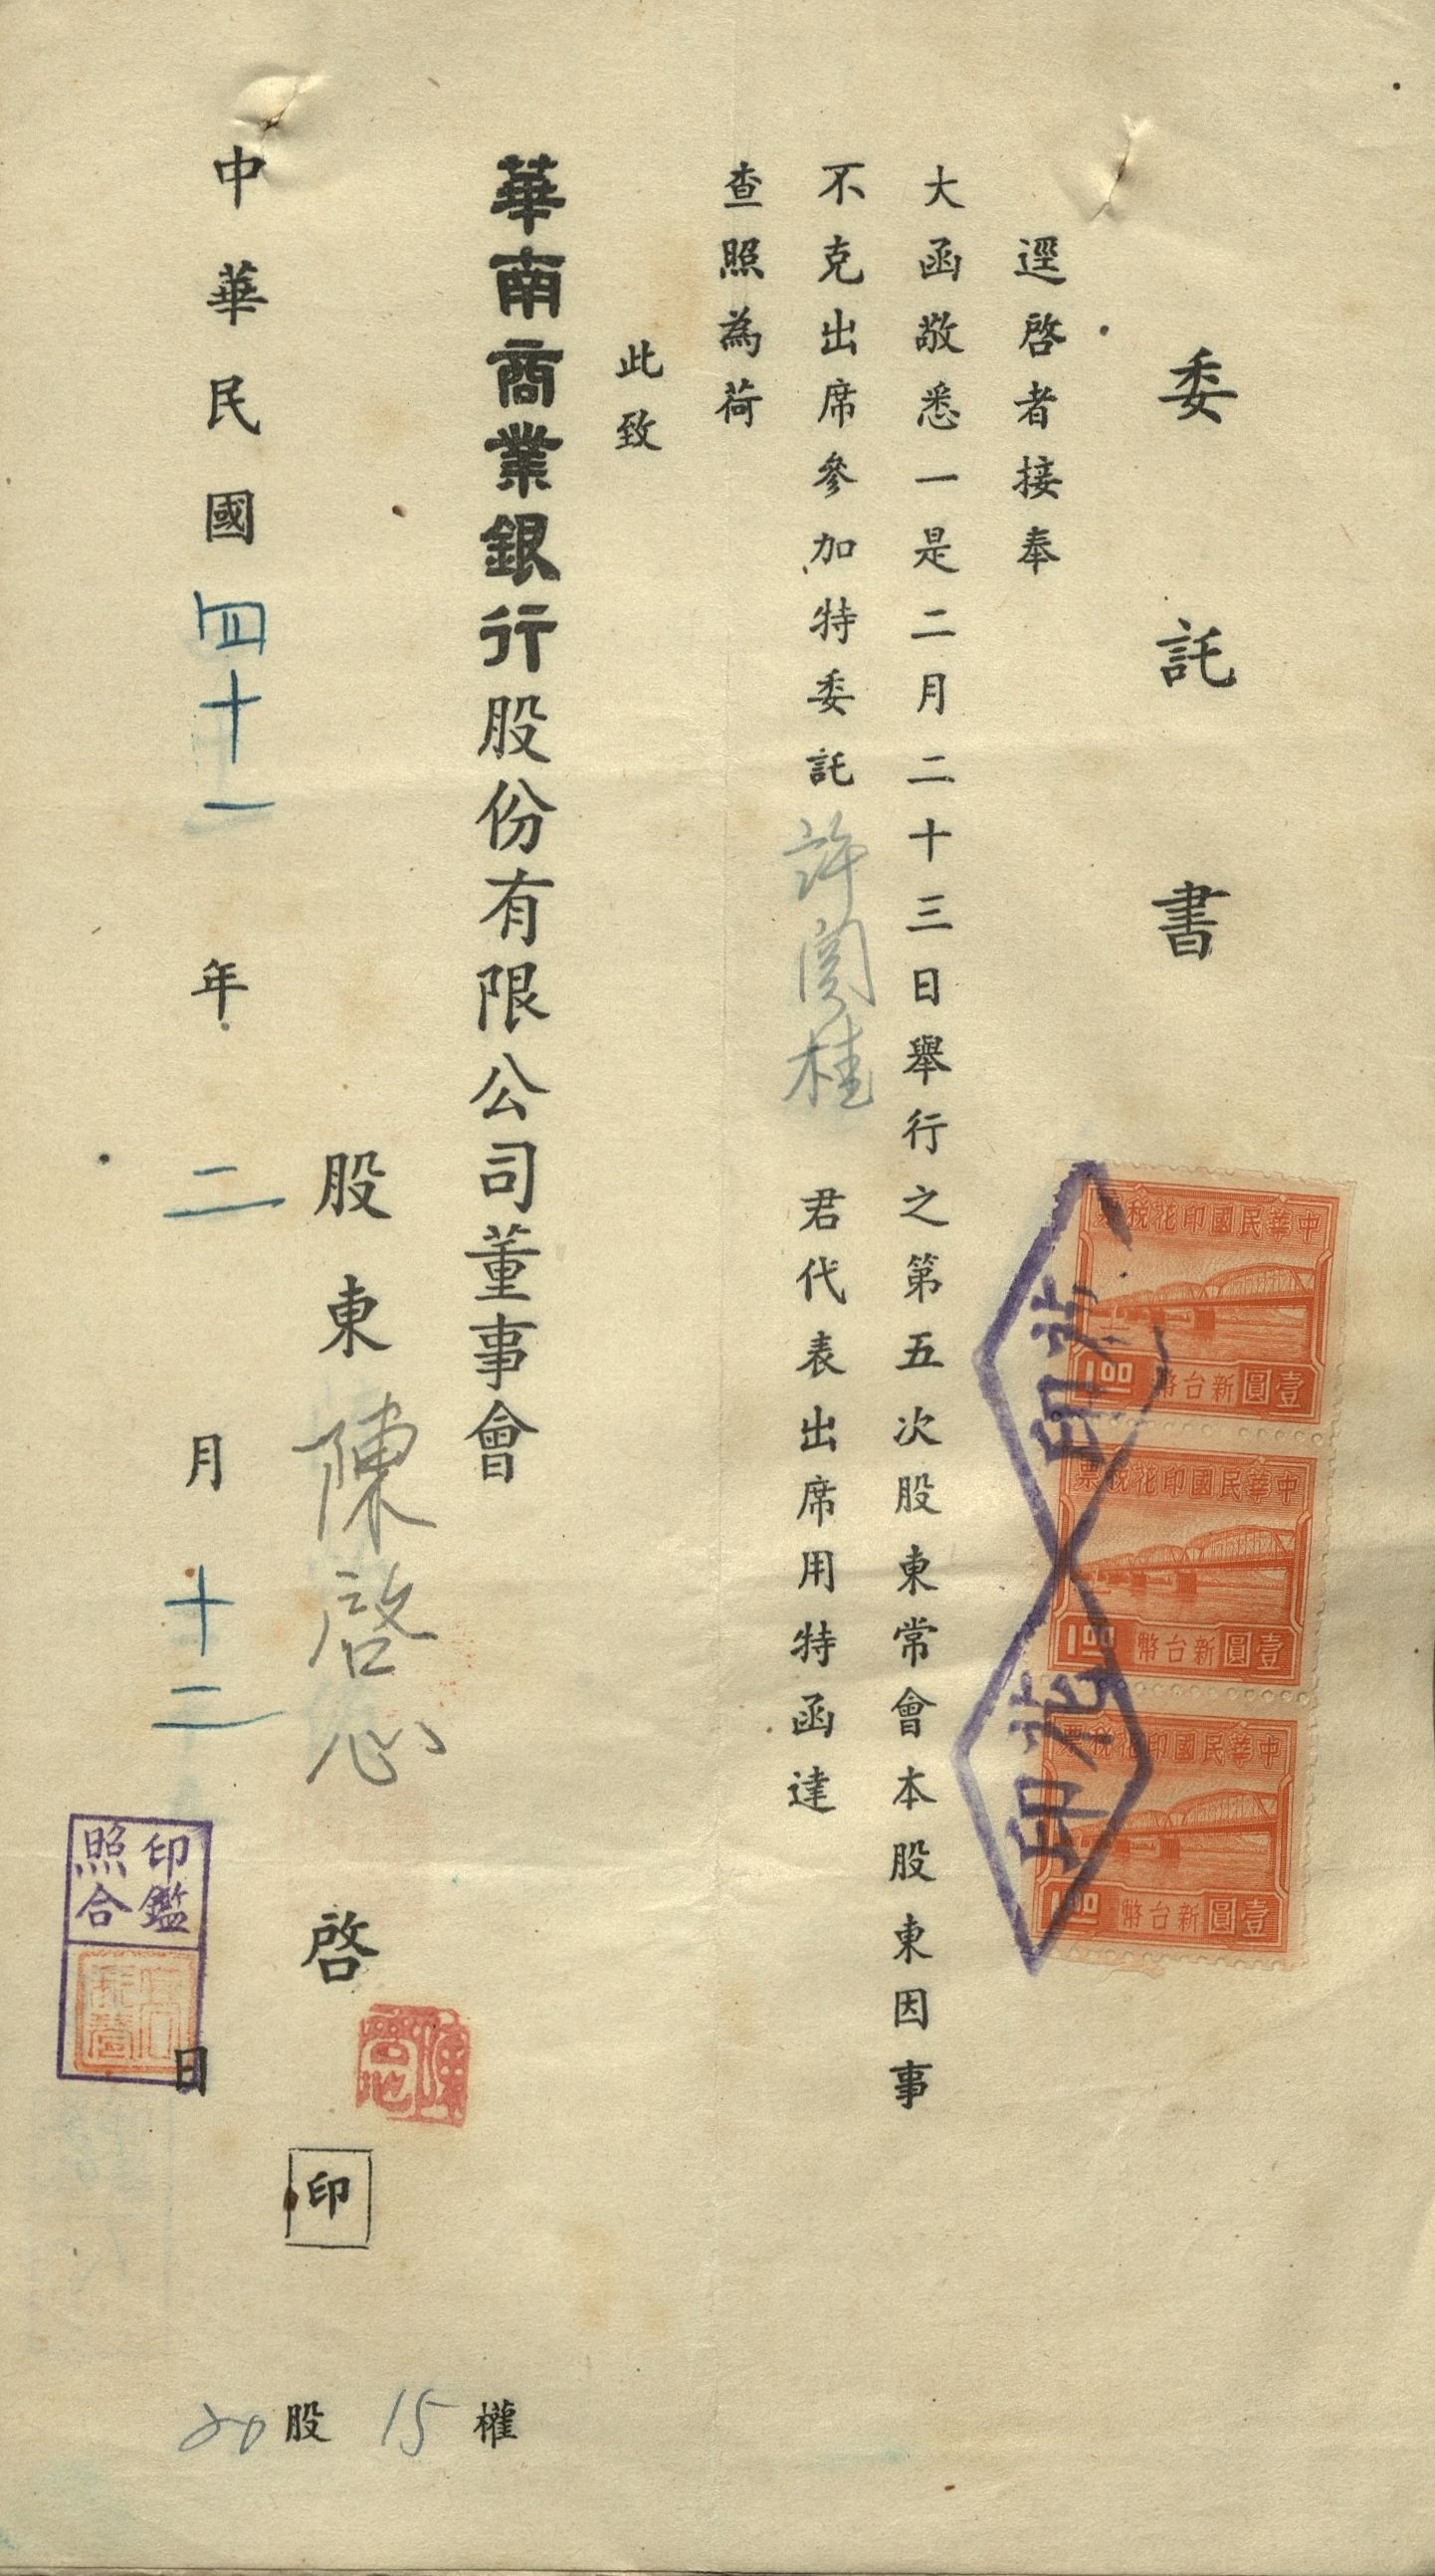 委託書
逕啓者接奉
大函敬悉一是二月二十三日舉行之第五次股東常會本股東因事
不克出席參加特委託許丙桂君代表出席用特函達
查照為荷
此致
華南商業銀行股份有限公司董事會
股東陳啓忠啓
印
中華民國四十一年二月十二日
20股 15權
印鑑
照合
中華民國印花稅票
1.00 壹圓新台幣
中華民國印花稅票
1.00 壹圓新台幣
中華民國印花稅票
1.00 壹圓新台幣
印花
印花